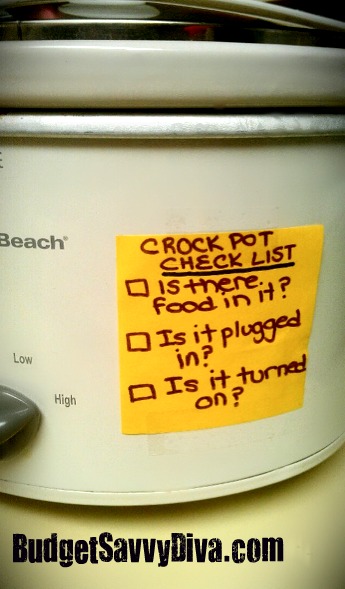 Beach®
CROCK POT
CHECK LIST
□ Is there
food in it?
□ Is it plugged
in?
□ Is it turned
on?
Low
High
BudgetSavvyDiva.com